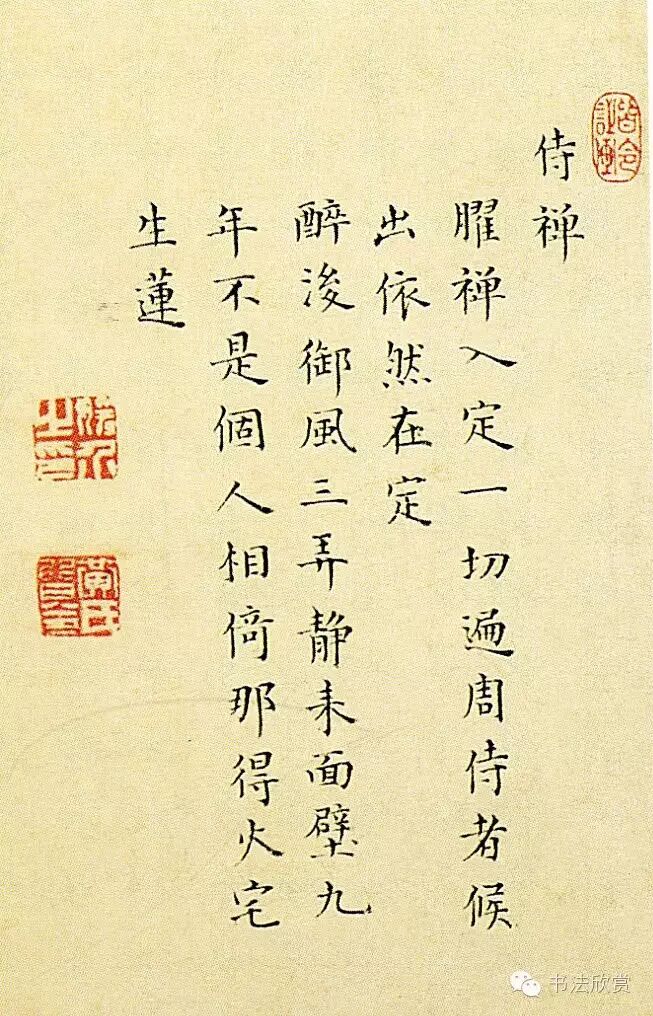 侍禅
臞禅入定一切遍周侍者候
出依然在定
醉後御風三弄静来面壁九
年不是個人相倚那得火宅
生蓮
黄氏皆令
书法欣赏